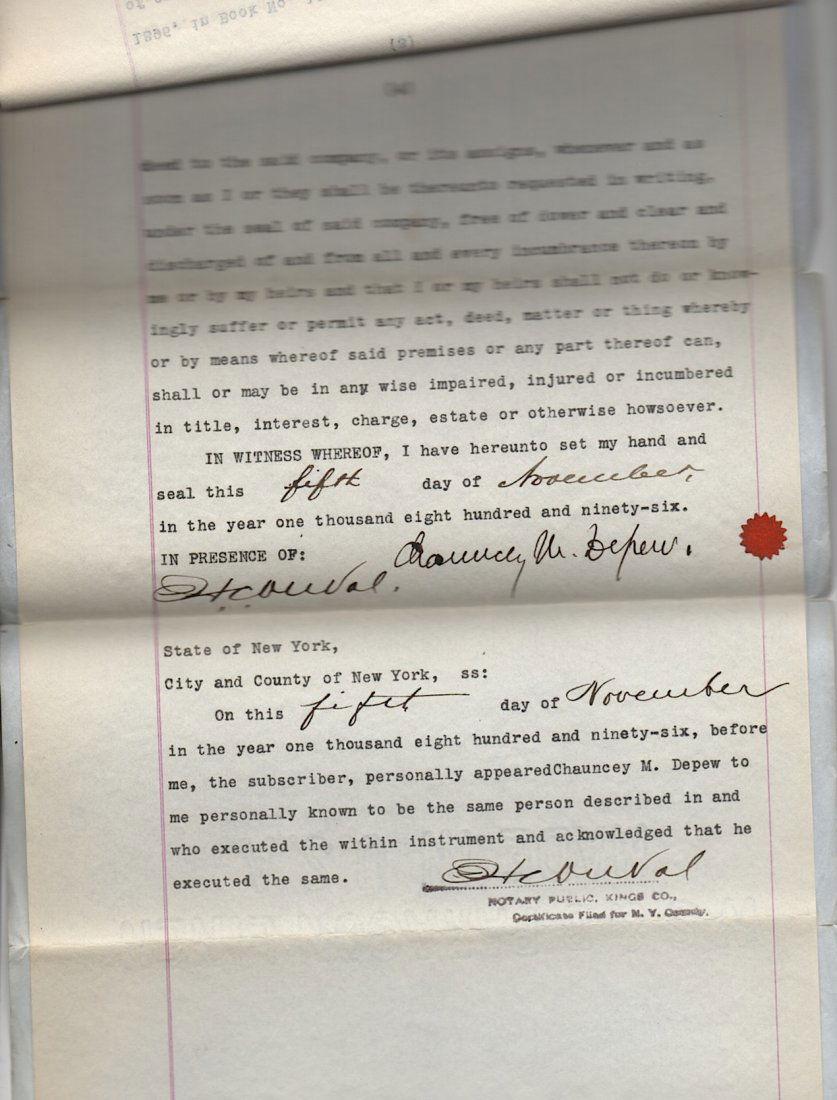 (3)
deed to the said company, or its assigns, whenever and as
soon as I or they shall be thereunto requested in writing,
under the seal of said company, free of dower and clear and
discharged of and from all and every incumbrance thereon by
me or by my heirs and that I or my heirs shall not do or know-
ingly suffer or permit any act, deed, matter or thing whereby
or by means whereof said premises or any part thereof can,
shall or may be in any wise impaired, injured or incumbered
in title, interest, charge, estate or otherwise howsoever.
IN WITNESS WHEREOF, I have hereunto set my hand and
seal this fifth day of November,
in the year one thousand eight hundred and ninety-six.
IN PRESENCE OF: Chauncey M. Depew.
State of New York,
City and County of New York, ss:
On this fifth day of November
in the year one thousand eight hundred and ninety-six, before
me, the subscriber, personally appearedChauncey M. Depew to
me personally known to be the same person described in and
who executed the within instrument and acknowledged that he
executed the same.
NOTARY PUBLIC, KINGS CO.,
Certificate Filed for N. Y. County.